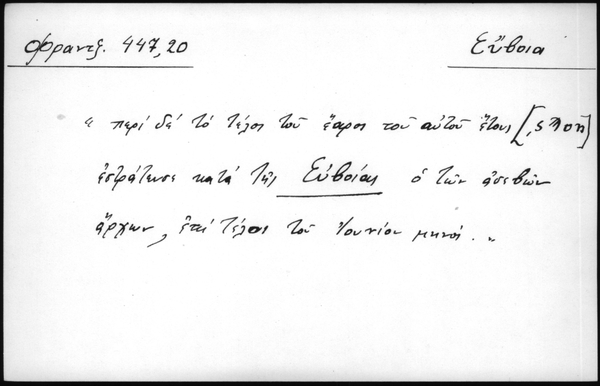 Φραντζ. 447,20
Εὔβοια
« περί δέ τό τέλος τοῦ ἔαρος τοῦ αὐτοῦ ἔτους [,ςϠοη]
ἐστράτευσε κατά τῆς Εὐβοίας ὁ τῶν ἀσεβῶν
ἄρχων, ἐπί τέλος τοῦ Ἰουνίου μηνός. »